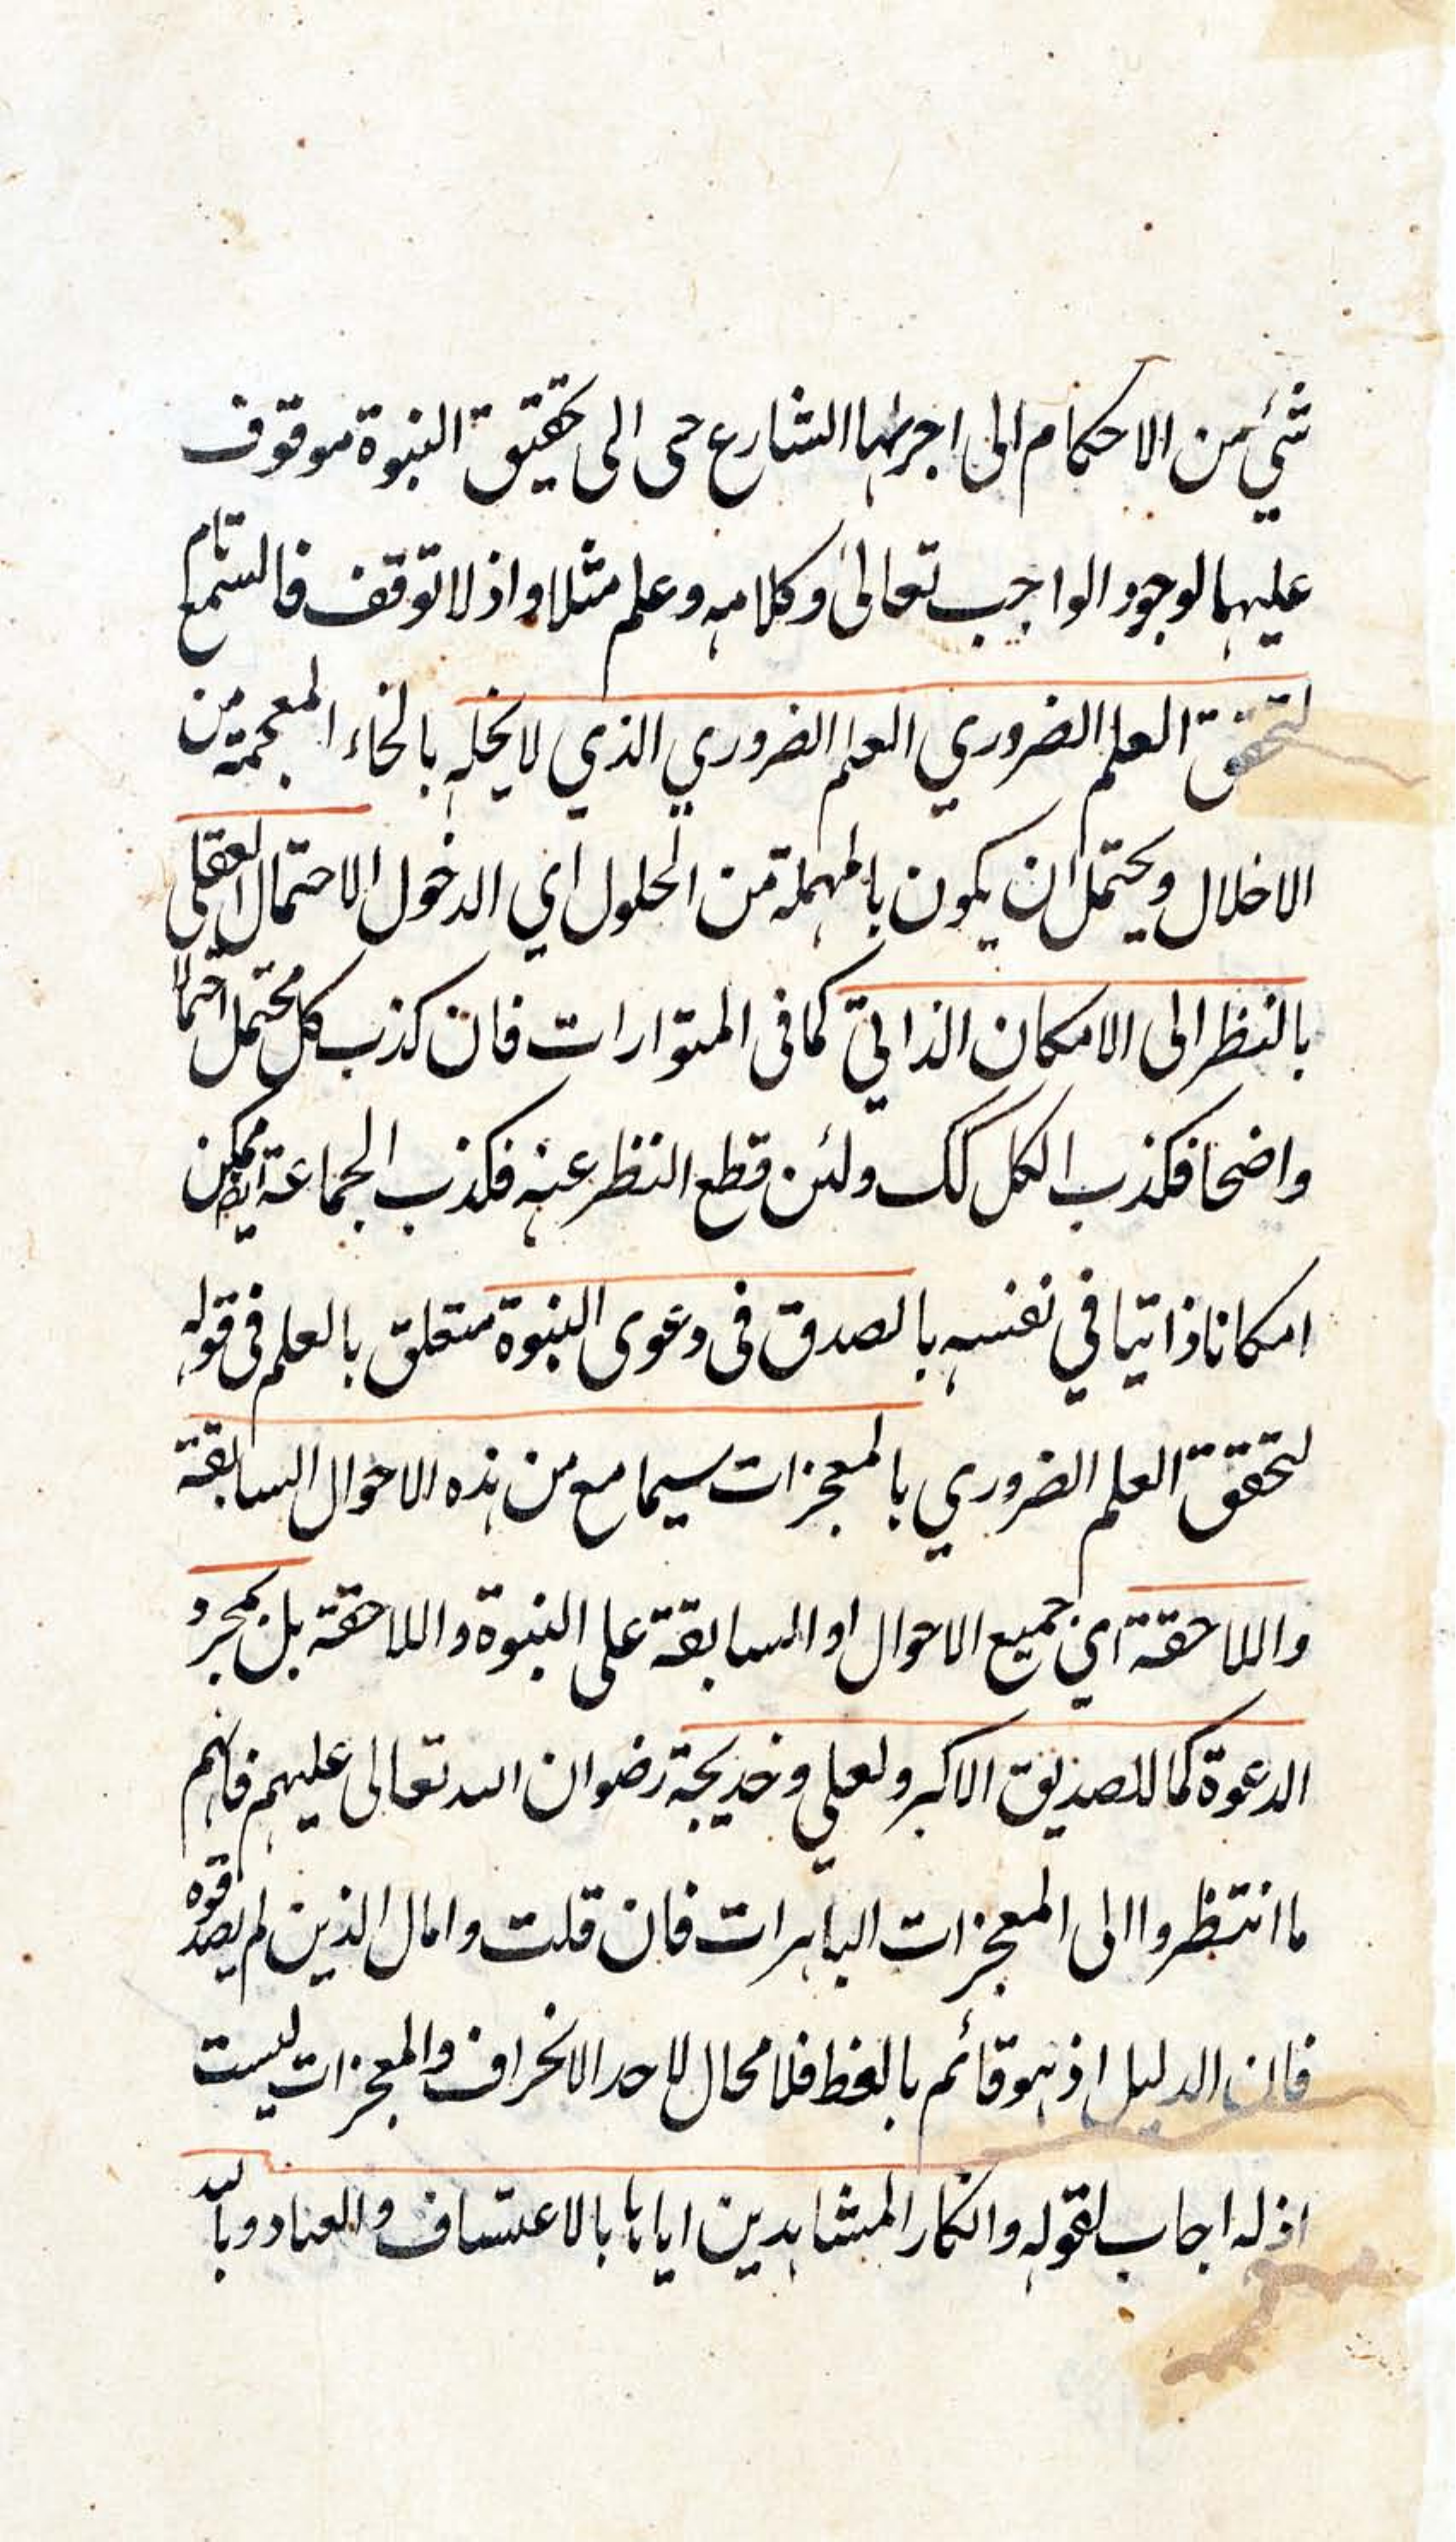 شئ من الاحكام الى اجرائها الشارع حى الى تحقيق النبوة موقوف
عليها لوجود الواجب تعالى وكلامه وعلم مثلا واذ لا توقف فالسمع تام
لتحقق العلم الضروري العلم الضروري الذي لا يخله بالخاء المعجمة من
الاخلال ويحتمل ان يكون بالمهملة من الحلول اي الدخول الاحتمال العقلى
بالنظر الى الامكان الذاتي كما فى المتوارات فان كذب كل محتمل احتمالا
واضحا فكذب الكل كك ولئن قطع النظر عنه فكذب الجماعة ايضا ممكن
امكانا ذاتيا في نفسه بالصدق فى دعوى النبوة متعلق بالعلم فى قوله
لتحقق العلم الضروري بالمعجزات سيما مع من هذه الاحوال السابقة
واللاحقة اي جميع الاحوال او السابقة على النبوة واللاحقة بل بمجرد
الدعوة كما للصديق الاكبر ولعلي وخديجة رضوان الله تعالى عليهم فانهم
ما انتظروا الى المعجزات الباهرات فان قلت وامال الذين لم يصدقوه
فان الدليل اذ هو قائم بالغط فلا محال لاحد الانحراف والمعجزات ليست
اذله اجاب لقوله وانكار المشاهدين اياها بالاعتساف والعناد وبالله